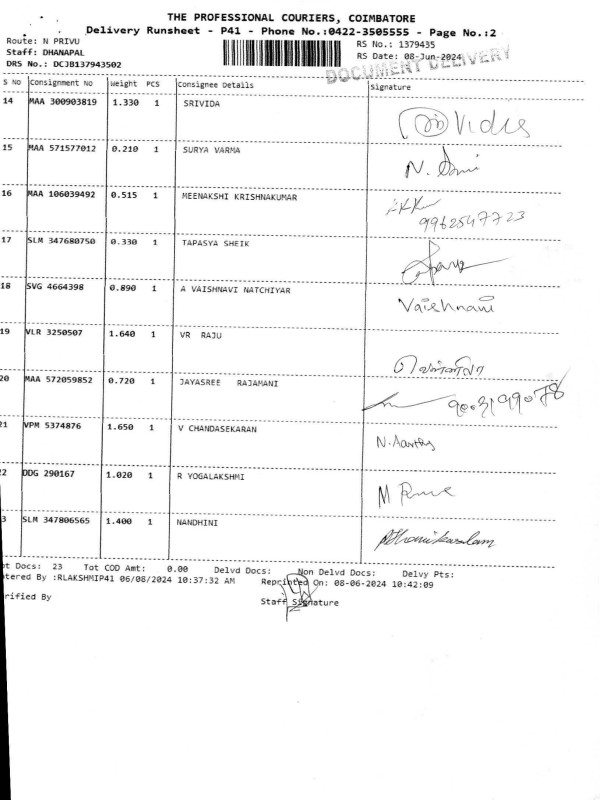 THE PROFESSIONAL COURIERS, COIMBATORE
Delivery Runsheet - P41 - Phone No.:0422-3505555 - Page No.:2
Route: N PRIVU RS No.: 1379435
Staff: DHANAPAL RS Date: 08-Jun-2024
DRS No.: DCJB137943502 DOCUMENT DELIVERY
S No Consignment No Weight PCS Consignee Details Signature
14 MAA 300903819 1.330 1 SRIVIDA Vidis
15 MAA 571577012 0.210 1 SURYA VARMA
16 MAA 106039492 0.515 1 MEENAKSHI KRISHNAKUMAR
9962547723
17 SLM 347680750 0.330 1 TAPASYA SHEIK
18 SVG 4664398 0.890 1 A VAISHNAVI NATCHIYAR Vaishnavi
19 VLR 3250507 1.640 1 VR RAJU
20 MAA 572059852 0.720 1 JAYASREE RAJAMANI
21 VPM 5374876 1.650 1 V CHANDASEKARAN N. Aarthy
22 DDG 290167 1.020 1 R YOGALAKSHMI
3 SLM 347806565 1.400 1 NANDHINI
ot Docs: 23 Tot COD Amt: 0.00 Delvd Docs: Non Delvd Docs: Delvy Pts:
tered By :RLAKSHMIP41 06/08/2024 10:37:32 AM Reprinted On: 08-06-2024 10:42:09
rified By Staff Signature